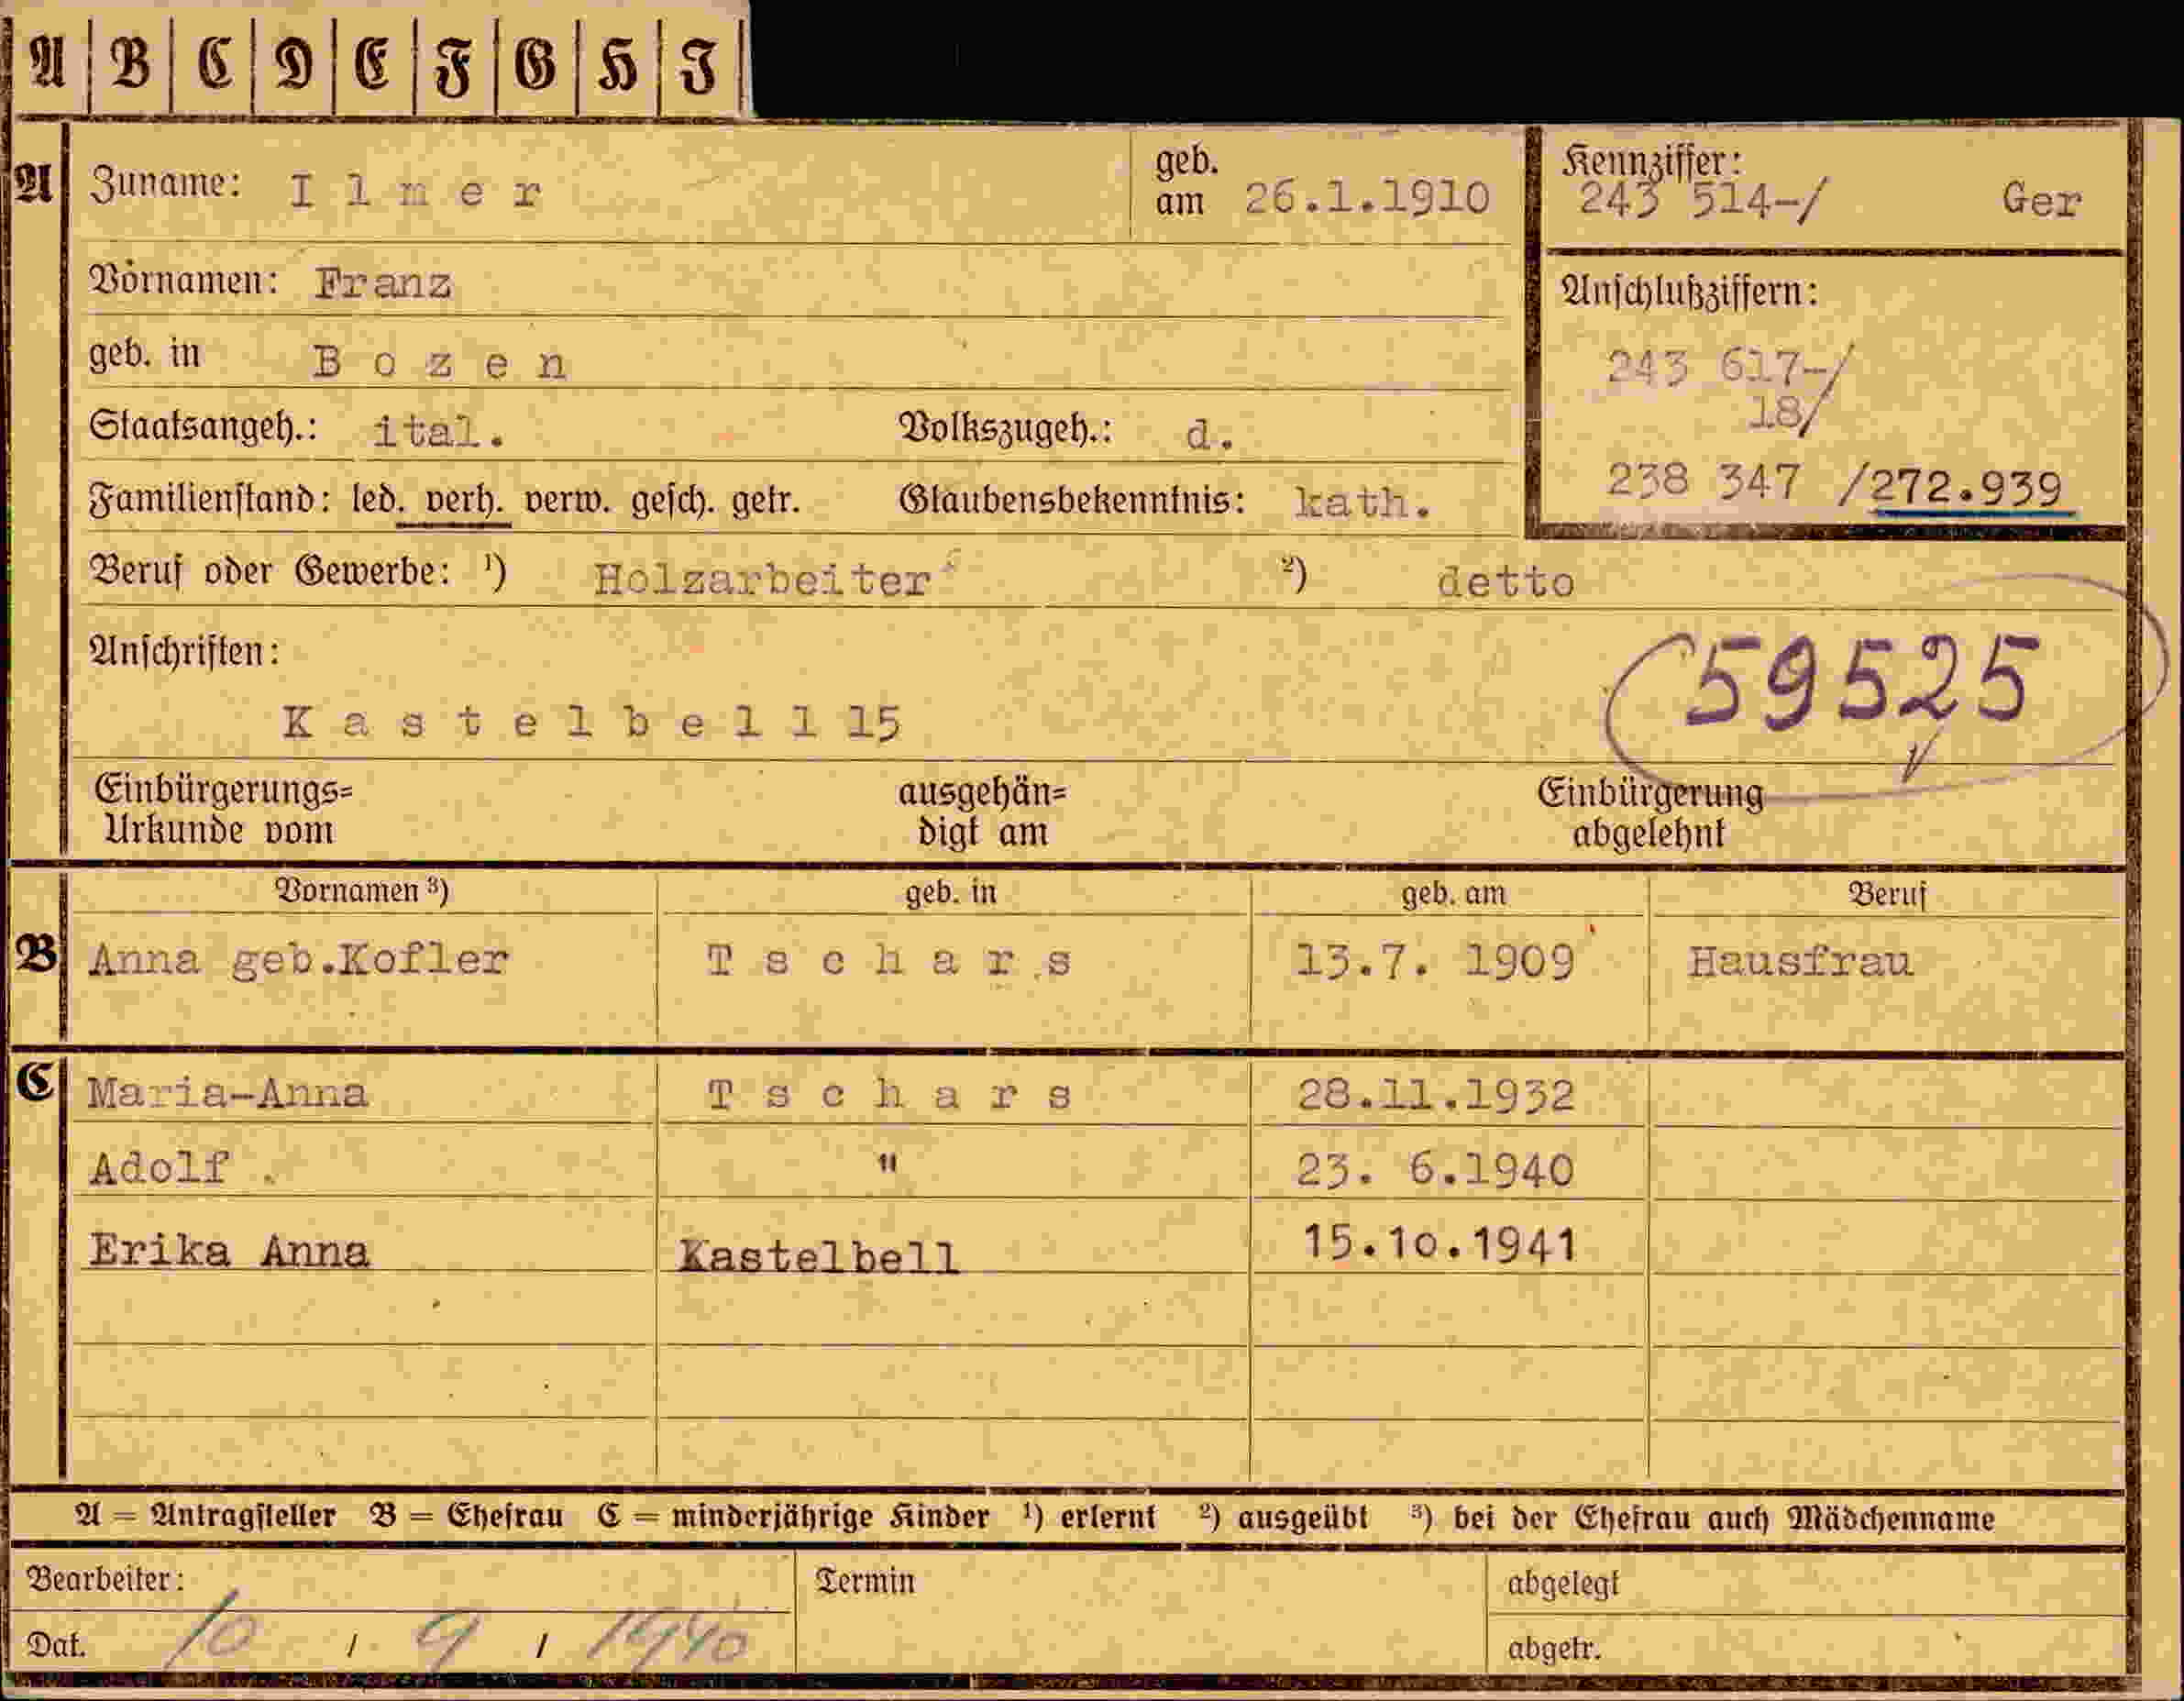 A B C D E F G H I
A Zuname: I l m e r geb. am 26.1.1910
Kennziffer: 243 514-/ Ger
Vornamen: Franz
geb. in B o z e n
Staatsangeh.: ital. Volkszugeh.: d.
Familienstand: led. verh. verw. gesch. getr. Glaubensbekenntnis: kath.
Anschlußziffern:
243 617-/
18/
238 347 /272.939
Beruf oder Gewerbe: ¹) Holzarbeiter ²) detto
Anschriften:
59525
K a s t e l b e l l 15
Einbürgerungs= ausgehän= Einbürgerung
Urkunde vom digt am abgelehnt
Vornamen ³) geb. in geb. am Beruf
B Anna geb.Kofler T s c h a r s 13.7. 1909 Hausfrau
C Maria-Anna T s c h a r s 28.11.1932
Adolf " 23. 6.1940
Erika Anna Kastelbell 15.10.1941
A = Antragsteller B = Ehefrau C = minderjährige Kinder ¹) erlernt ²) ausgeübt ³) bei der Ehefrau auch Mädchenname
Bearbeiter: Termin abgelegt
Dat. 10 / 9 / 1940 abgetr.